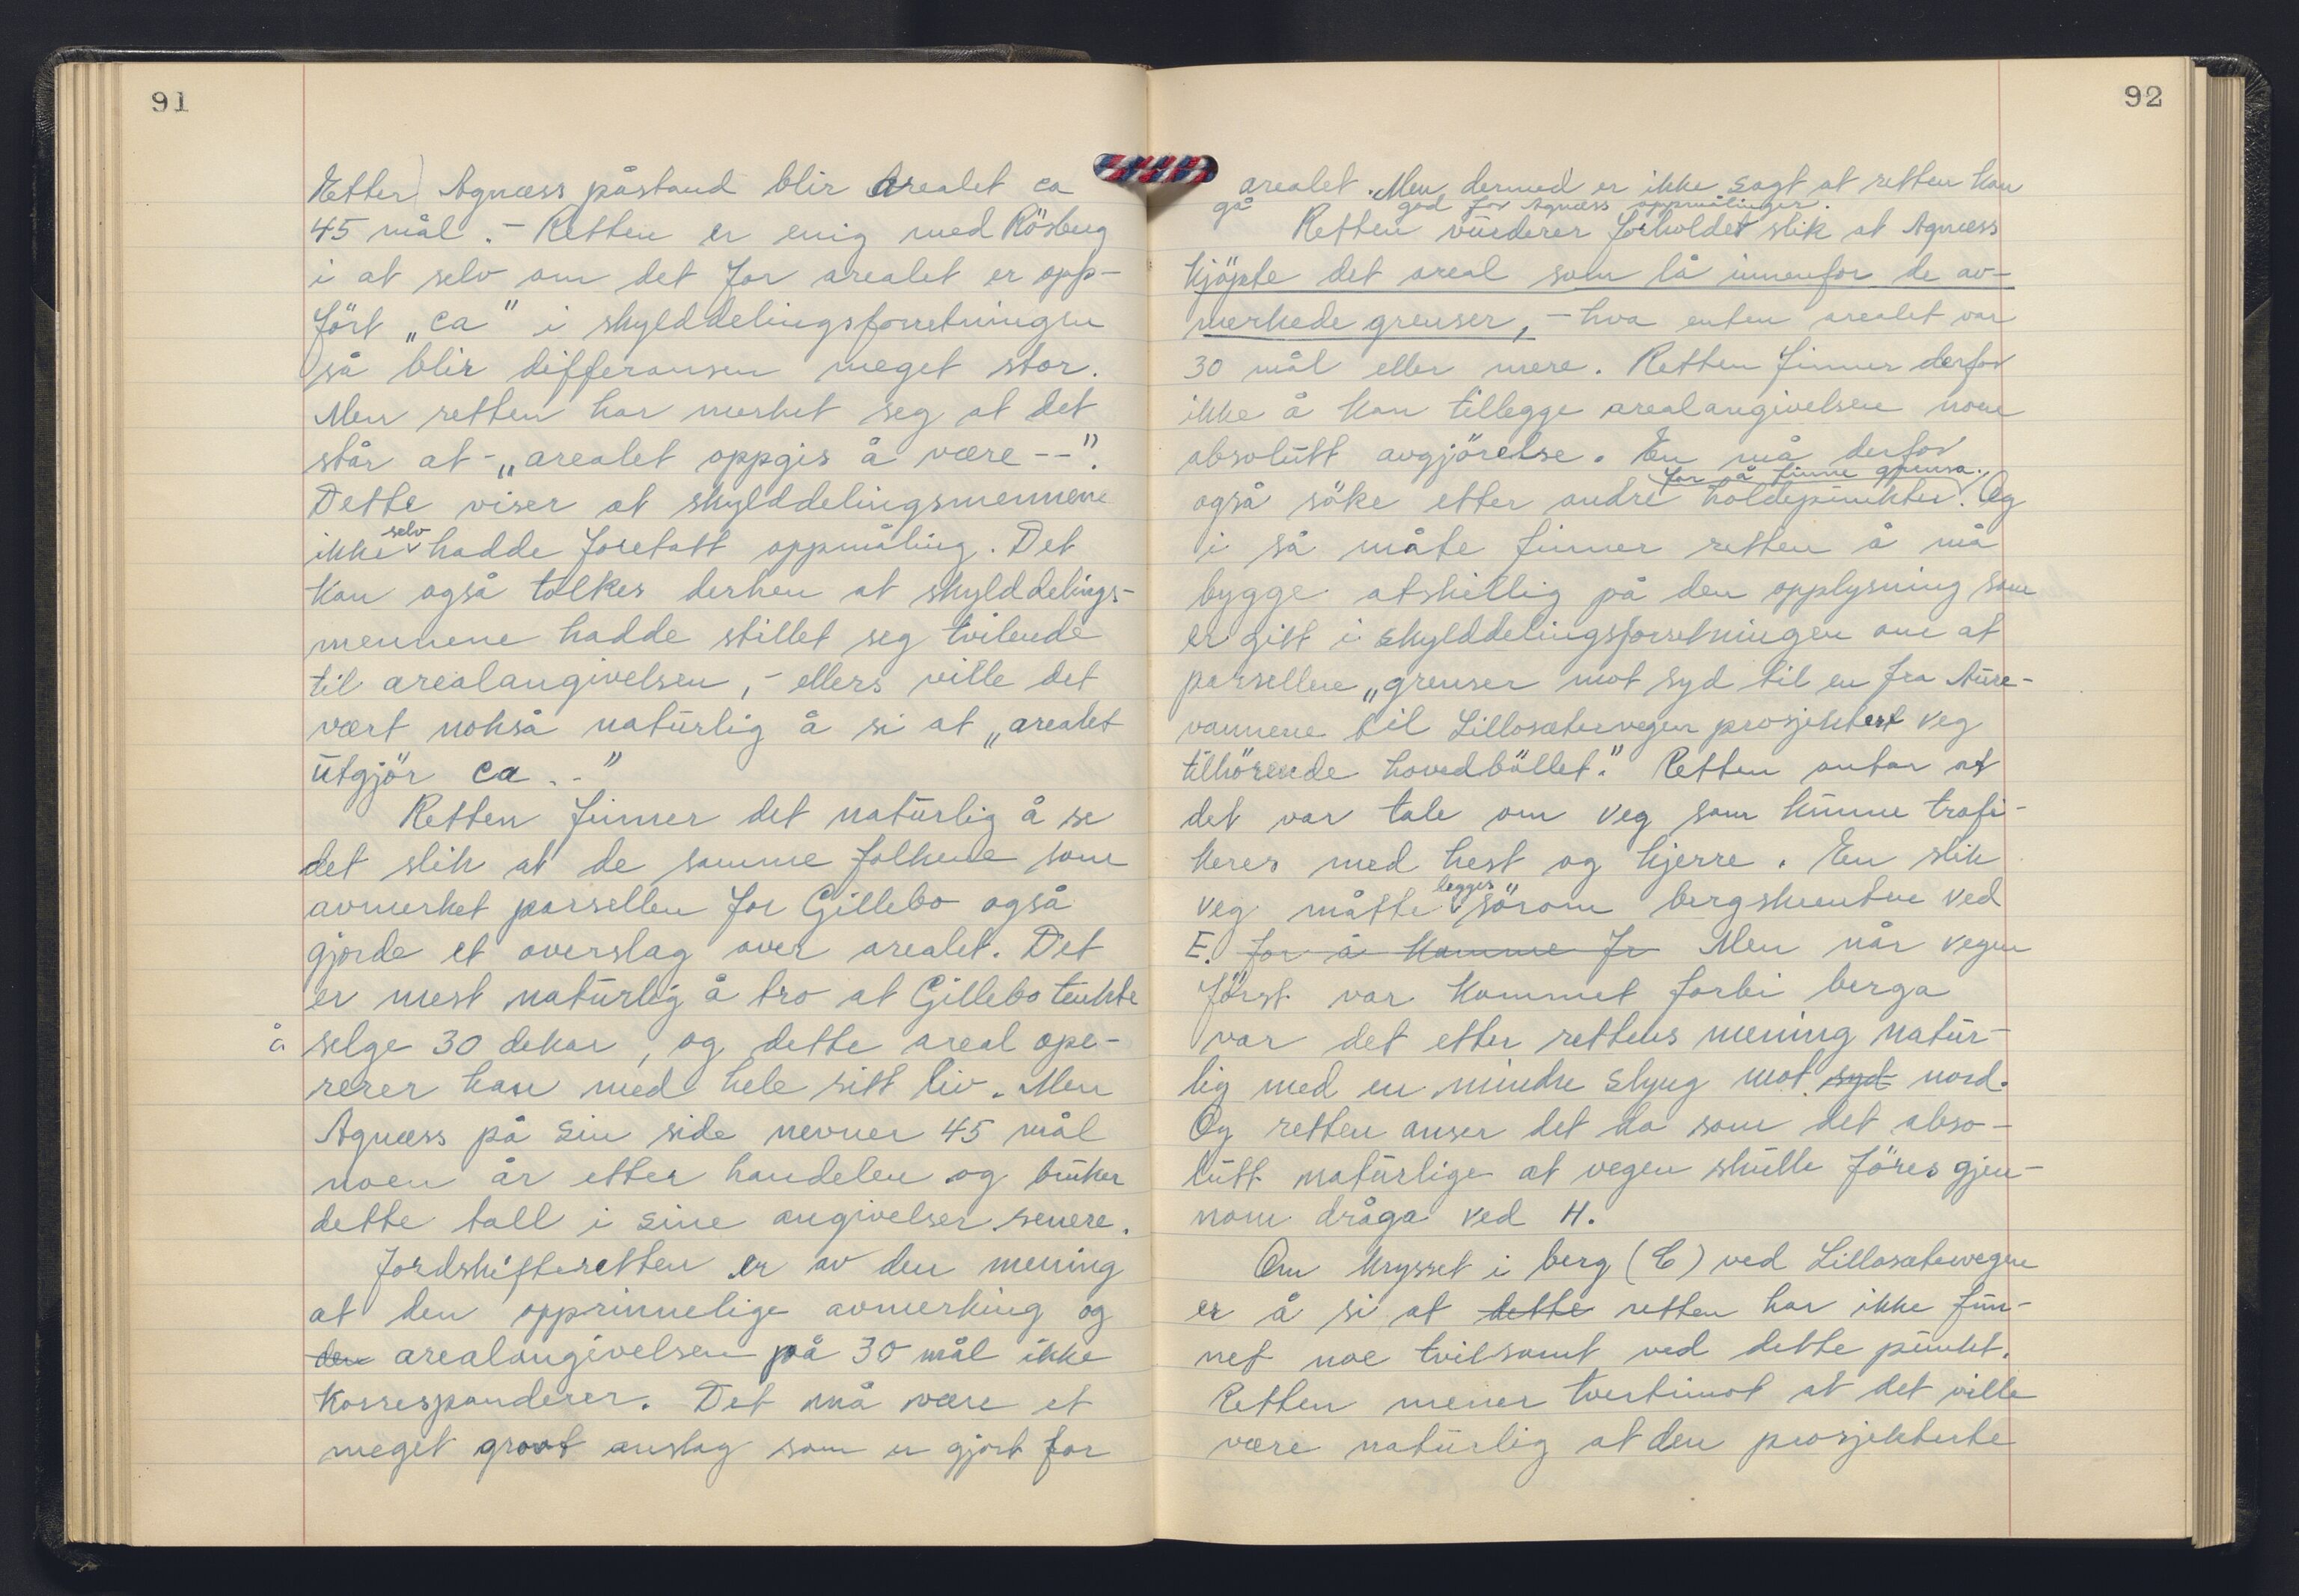 91
Etter Agnæss påstand blir arealet ca
45 mål. - Retten er enig med Rösberg
i at selv om det for arealet er opp-
fört „ca" i skylddelingsforretningen
så blir differansen meget stor.
Men retten har merket seg at det
står at - „arealet oppgis å være --".
Dette viser at skylddelingsmennene
ikke selv hadde foretatt oppmåling. Det
kan også tolkes derhen at skylddelings-
mennene hadde stillet seg tvilende
til arealangivelsen, - ellers ville det
vært nokså naturlig å si at „arealet
utgjör ca --"
Retten finner det naturlig å se
det slik at de samme folkene som
avmerket parsellen for Gillebo også
gjorde et overslag over arealet. Det
er mest naturlig å tro at Gillebo tenkte
å selge 30 dekar, og dette areal ope-
rerer han med hele sitt liv. Men
Agnæss på sin side nevner 45 mål
noen år etter handelen og bruker
dette tall i sine angivelser senere.
Jordskifteretten er av den mening
at den opprinnelige avmerking og
den arealangivelsen på 30 mål ikke
korresponderer. Det må være et
meget grovt anslag som er gjort for
92
arealet. Men dermed er ikke sagt at retten kan
gå god for Agnæss oppmålinger.
Retten vurderer forholdet slik at Agnæss
kjöpte det areal som lå innenfor de av-
merkede grenser, - hva enten arealet var
30 mål eller mere. Retten finner derfor
ikke å kan tillegge arealangivelsen noen
absolutt avgjörelse. En må derfor
også söke etter andre holdepunkter for å finne grensa. Og
i så måte finner retten å må
bygge atskillig på den opplysning som
er gitt i skylddelingsforretningen om at
parsellen „grenser mot syd til en fra Aure-
vannene til Lillosætervegen prosjektert veg
tilhörende hovedböllet." Retten antar at
det var tale om veg som kunne trafi-
keres med hest og kjerre. En slik
veg måtte legges sörom bergskrenten ved
E. for å komme fr Men når vegen
först var kommet forbi berga
var det etter rettens mening natur-
lig med en mindre slyng mot syd nord.
Og retten anser det da som det abso-
lutt naturlige at vegen skulle föres gjen-
nom dråga ved H.
Om krysset i berg (C) ved Lillosætervegen
er å si at dette retten har ikke fun-
net noe tvilsomt ved dette punkt.
Retten mener tvertimot at det ville
være naturlig at den prosjekterte